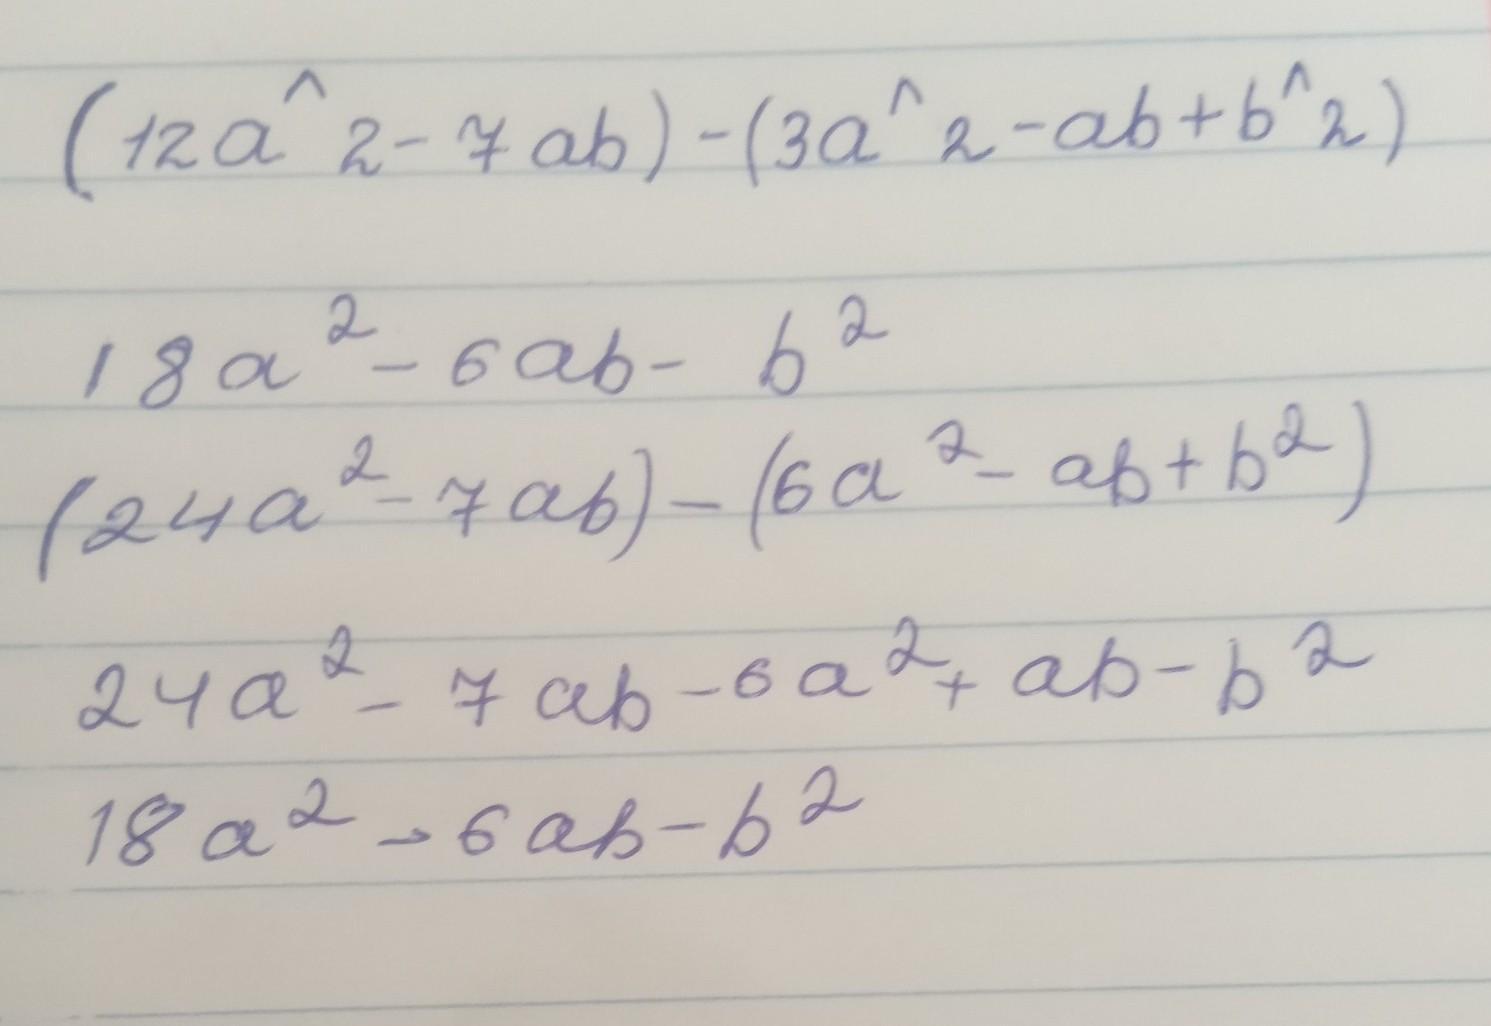 (12a^2-7ab)-(3a^2-ab+b^2)
18a²-6ab- b²
(24a²-7ab)-(6a²-ab+b²)
24a²-7ab-6a²+ab-b²
18a²-6ab-b²